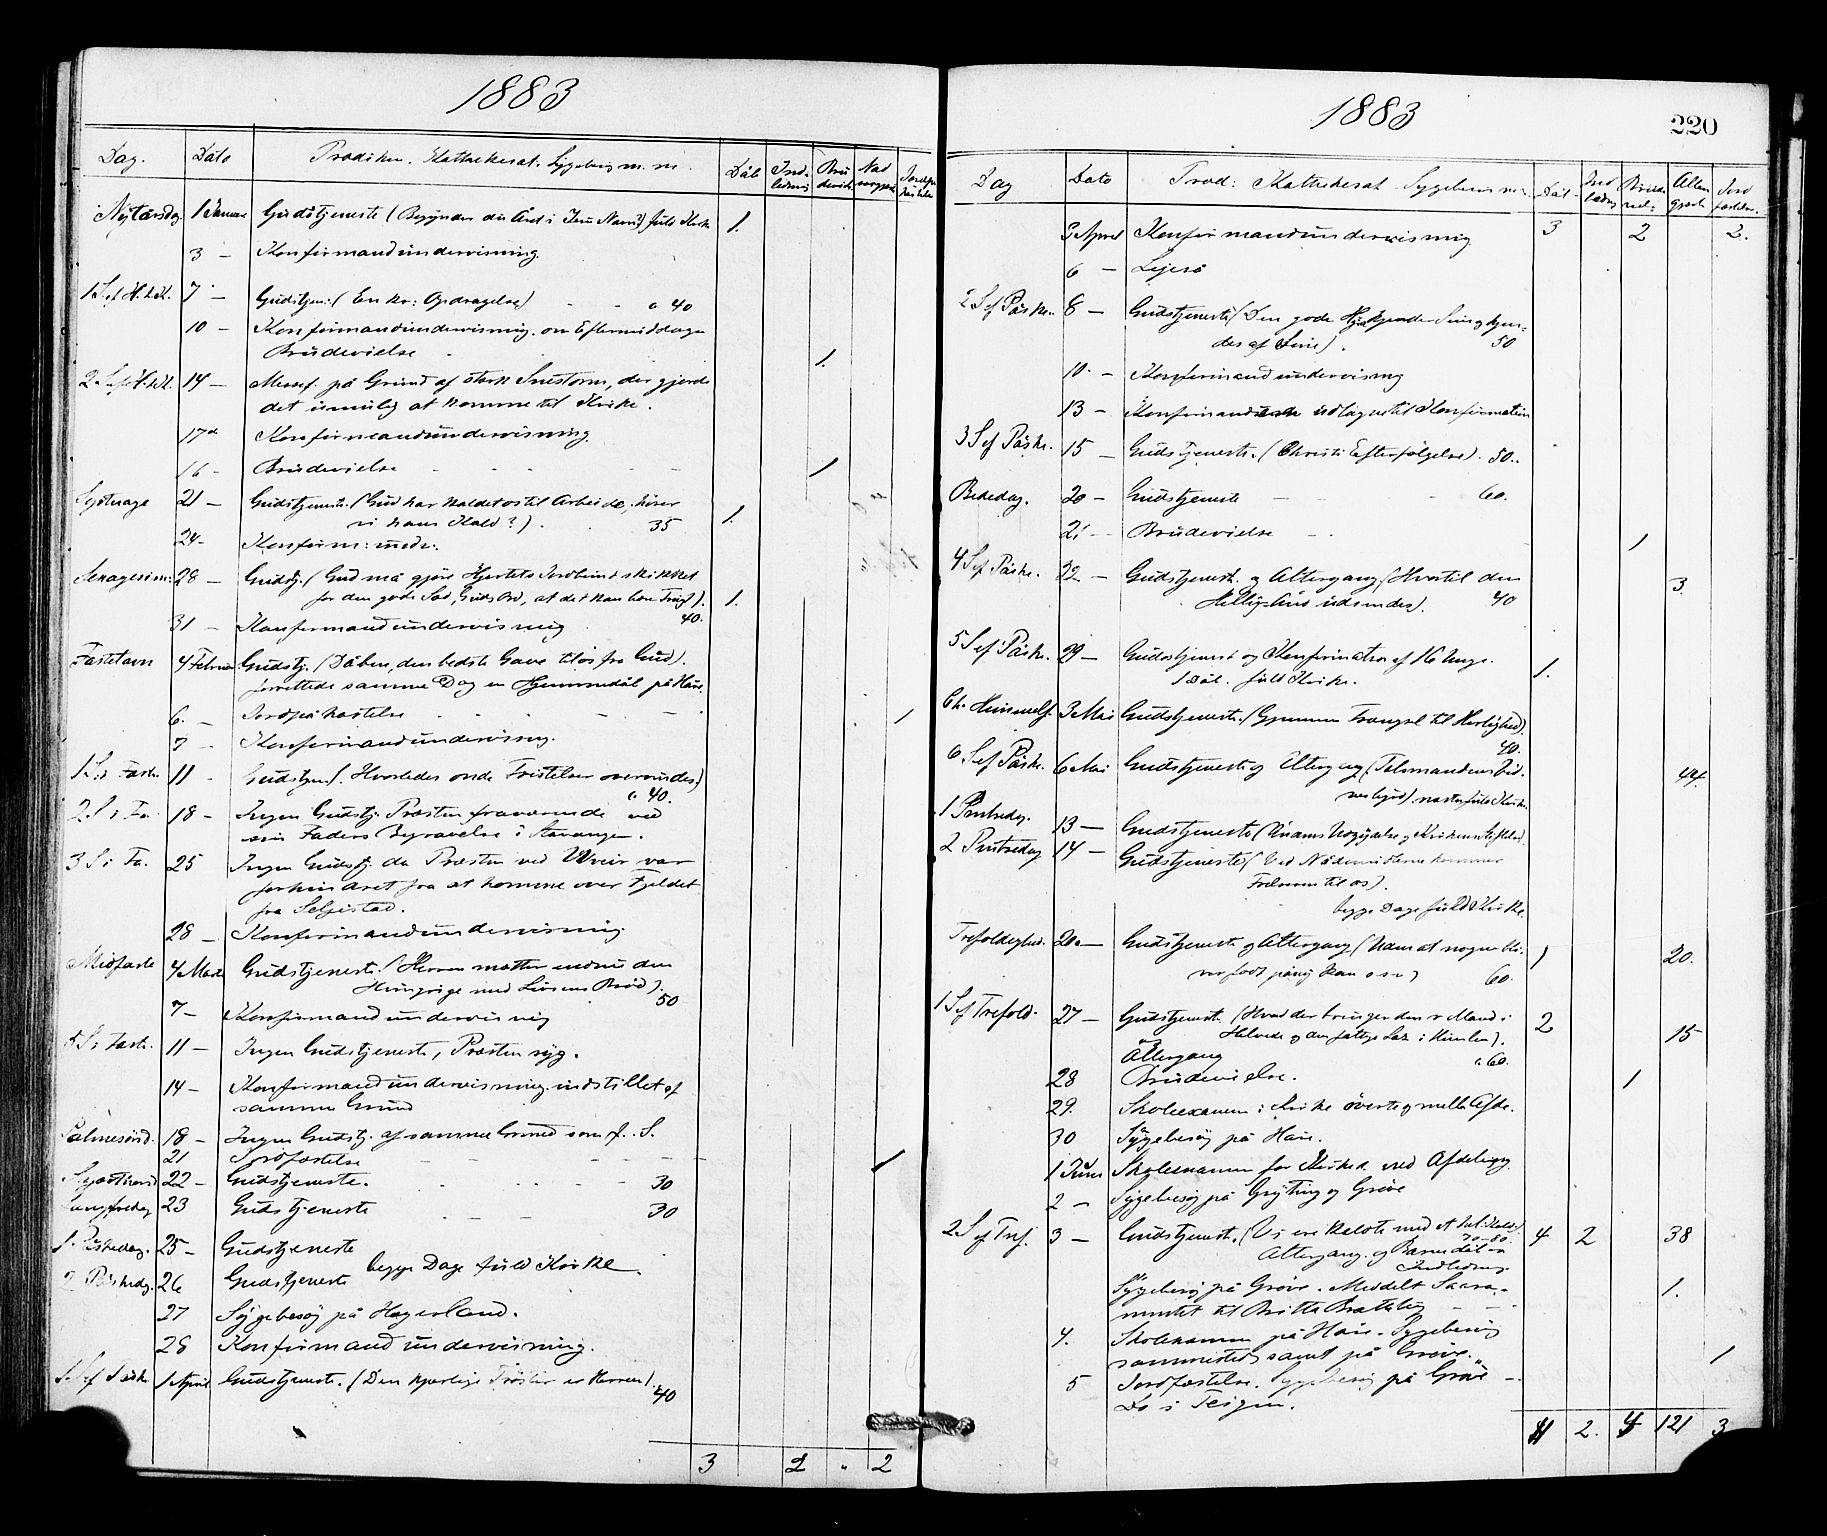 1883
Dag. Dato Prædiken. Kattekesat. Sygebesøg m. m. Dåb Indledning Brudevielse
Nytårsdag 1 Januar Gudstjeneste (Begynder du Året i Jesu Navn?) fuld Kirke 1.
3 — Konfirmandundervisning.
1 S. ef. H. t. K. 7 — Gudstjen: (En kr: Opdragelse) - - c 40
10 — Konfirmandundervisning. om Eftermiddagen
Brudevielse 1.
2 S. ef. H. t. K. 14 — Messef. på Grund af stærk Snestorm, der gjorde
det umulig at komme til Kirke.
17de Konfirmandundervisning.
16 - Brudevielse - - - 1
21 — Gudstjeneste (Gud har kaldet os til Arbeide, hører
vi hans Kald?). 35 1.
24 - Konfirm: under:
Sexagesim: 28 — Gudstj. (Gud må gjøre Hjertets Jordbund skikket
for den gode Sæd, Guds Ord, at det kan bære Frugt). 1.
40.
31 — Konfirmandundervisning
Fastelavn 4 Februar Gudstj. (Dåben, den bedste Gave til os fra Gud).
forrettede samme Dag en Hjemmedåb på Håre.
6. — Jordpåkastelse - - - 1
7 — Konfirmandundervisning.
1 S. i Faste 11 - Gudstjen. (Hvorledes onde Fristelser overvindes)
c 40.
2 S. i Fa. 18 - Ingen Gudstj. Præsten fraværende ved
sin Faders Begravelse i Stavanger.
3 S. i Fa. 25 Ingen Gudstj. da Præsten ved Uveir var
forhindret fra at komme over Fjeldet
fra Seljestad.
28 — Konfirmandundervisning.
Midfaste 4 Marts Gudstjeneste. (Herren mætter endnu den
Hungrige med Livsens Brød).
50
7 — Konfirmandundervisning
5 S. i Faste. 11 — Ingen Gudstjeneste, Præsten syg.
14 — Konfirmandundervisning indstillet af
samme Grund
Palmesønd. 18 - Ingen Gudstj. af samme Grund som f. S.
21 Jordfæstelse - - - 1
22 - Gudstjeneste. - - - 30
Langfredag 23 Gudstjeneste - - - 30
1 Påskedag. 25 — Gudstjeneste
2 Påskedg. 26 Gudstjeneste begge Dage fuld Kirke.
27 Sygebesøg på Hagerland.
28 Konfirmandundervisning.
1 S. ef. Påske 1 April Gudstjeneste. (Den kjærlige Trøster er Herren).
40
3 2 " 2
1883
220
Dag Dato Præd: Kathekesat Sygebesøg m. Dåb Indledng Brudevielse Altergæst Jordfæstelse
April Konfirmandundervisning 3 2 2.
6 —
2 S ef Påske. 8 — Gudstjeneste (Den gode Hyrde kjender Sine og kjen-
des af Sine). 50
10. — Konfirmandundervisning
13 — Konfirmanderne udtagne til Konfirmation
3 S ef Påske. 15 — Gudstjeneste. (Christi Efterfølgelse). 50.
Bededag. 20 — Gudstjeneste - - - 60.
21 — Brudevielse - - 1
4 S ef Påske. 22 — Gudstjenest. og Altergang (Hvortil den
Hellig Ånd udsendes). 40 3.
5 S ef Påske. 29 — Gudstjenest og Konfirmation af 16 Unge.
1 Dåb. fuld Kirke. 1.
Ch. Himmelf. 3 Mai Gudstjeneste. (Gjennem Trængsel til Herlighed).
40.
6 S ef Påske. 6 Mai Gudstjeneste og Altergang (Talsmandens Vid-
nesbyrd) næsten fuld Kirke. 44.
1 Pintsedg. 13 — Gudstjeneste
2 Pintsedag 14 — Gudstjeneste (Ved Nådemidlerne kommer
Frelseren til os).
begge Dage fuld Kirke.
Trefoldighed. 20 — Gudstjeneste og Altergang (Uden at nogen bli-
ver født påny kan o s v) 60. 1 20.
1 S ef Trefold. 27 — Gudstjenest. (Hvad der bringer den r. Mand i
Helvede og den fattige Laz. i Himlen). 2 15
Altergang c 60.
28 Brudevielse. 1
29. Skoleexamen i Kirke øverste og mellm Afde.
30 Sygebesøg på Håre.
1 Juni Skoleexamen for Kirked. ned Afdeling
2 — Sygebesøg på Gryting og Grøve
2 S ef Tref. 3 — Gudstjenest. (Vi ere kaldte med et hel. Kald.) 4 2 38
70-80.
Altergang. og Barnedåb -
Indledning.
Sygebesøg på Grøve. Meddelt Sacra-
mentet til Britta Brattebø - - 1.
4. Skoleexamen på Håre. Sygebesøg
sammesteds samt på Grøve.
5 Jordfæstelse. Sygebesøg på Grøve - 1
Do i Teigen.
11 2. 4 121 3